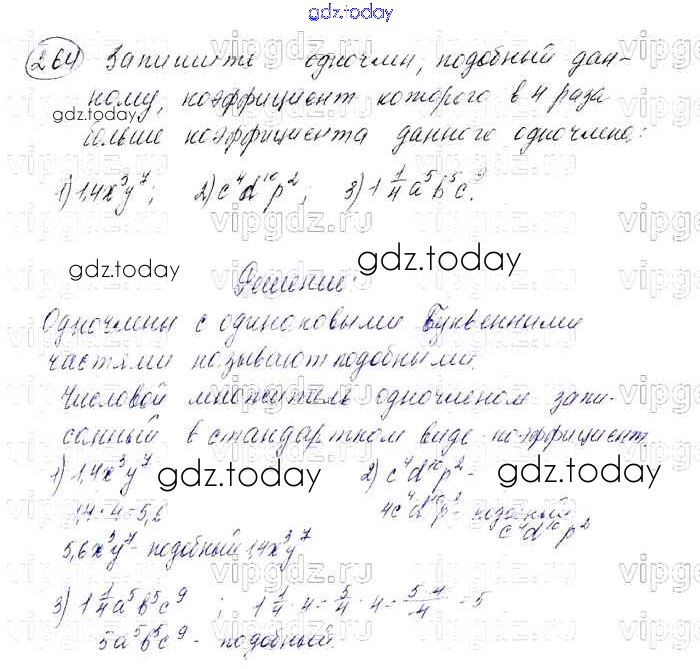 gdz.today
264 Запишите одночлен, подобный дан-
ному, коэффициент которого в 4 раза
больше коэффициента данного одночлена:
1) 1,4x³y⁷; 2) c⁴d¹⁰p²; 3) 1 1/4 a⁵b⁵c⁹.
gdz.today gdz.today
Решение:
Одночлены с одинаковыми буквенными
частями называют подобными.
Числовой множитель одночленом запи-
санный в стандартном виде - коэффициент.
1) 1,4x³y⁷ 2) c⁴d¹⁰p² -
gdz.today gdz.today
1,4·4=5,6 4c⁴d¹⁰p² - подобный
c⁴d¹⁰p²
5,6x³y⁷ - подобный 1,4x³y⁷
3) 1 1/4 a⁵b⁵c⁹ ; 1 1/4 · 4 = 5/4 · 4 = 5·4/4 = 5
5a⁵b⁵c⁹ - подобный.
gdz.today gdz.today